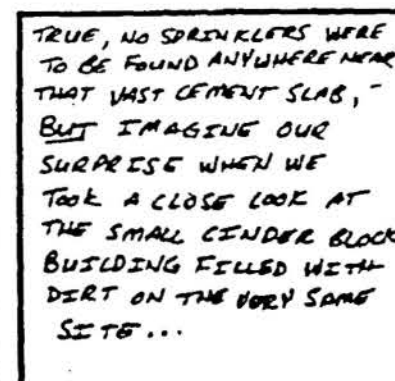 TRUE, NO SPRINKLERS WERE
TO BE FOUND ANYWHERE NEAR
THAT VAST CEMENT SLAB, -
BUT IMAGINE OUR
SURPRISE WHEN WE
TOOK A CLOSE LOOK AT
THE SMALL CINDER BLOCK
BUILDING FILLED WITH
DIRT ON THE VERY SAME
SITE...